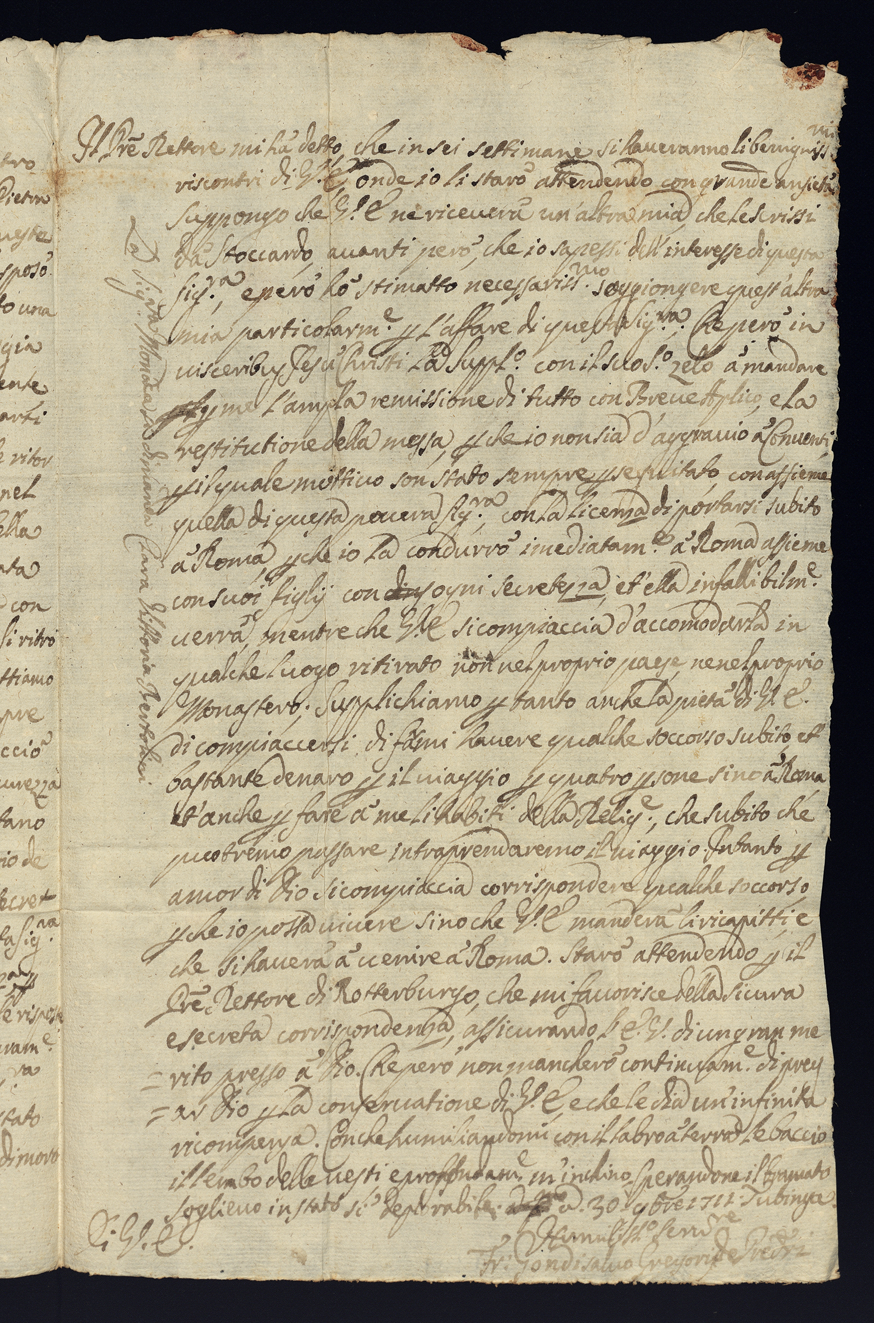 Il Prē Rettore mi hà detto, che in sei settimane si haveranno li benigniss.mi
riscontri di V.E. onde io li starò attendendo con grande ansietà
suppongo che V.E. ne riceverà un'altra mia, che le scrissi
da Stoccardo, avanti però, che io sapessi dell'interesse di questa
Sig.a, e però hò stimatto necessariss.mo soggiongere quest'altra
mia particolarm.e p l'affare di questa Sig.ra. Che però in
visceribus Jesu Christi la suppl.o con il suo s.o zelo à mandare
p me l'ampla remissione di tutto con Breve Applico, e la
restitutione della messa, p che io non sia d'aggravio à Conventi
p il quale mottivo son stato sempre psequitato, con assieme
quella di questa povera Sig.ra, con la licenza di portarsi subito
à Roma, p che io la condurrò imediatam.e à Roma assieme
con suoi figlij con ogni secretezza, et ella infallibilm.e
verrà, mentre che V.E. si compiaccia d'accomodarla in
qualche luogo ritirato non nel proprio paese, ne nel proprio
Monastero; Supplichiamo p tanto anche la pietà di V.E.
di compiaccersi, di farmi havere qualche soccorso subito, et
bastante denaro p il viaggio p quatro psone sino à Roma
et anche p fare à me li habiti della Relig.e, che subito che
puotremo passare intraprendaremo il viaggio. Intanto p
amor di Dio si compiaccia corrispondere qualche soccorso,
p che io possa vivere sino che V.E. manderà li ricapitti, e
che si haverà à venire à Roma. Starò attendendo p il
Prē Rettore di Rotterburgo, che mi favorisce della sicura
e secreta corrispondenza, assicurando l'E.V. di un gran me
= rito presso à Dio. Che però non mancherò continuam.e di preg
= ar Dio p la conservatione di V.E. e che le dia un'infinita
ricompensa. Con che humiliandomi con il labro à terra le baccio
il lembo delle vesti e profondam.e m'inchino, sperandone il bramato
soglievo in stato sì deplorabile. 30. 9bre 1711 Tubinga.
Di V.E.
Humiliss.o Serv.re
Fr. Gondisalvo Gregorio de Pietri
La Sig.ra Monaca si dimanda Clara Vittoria Bertolini